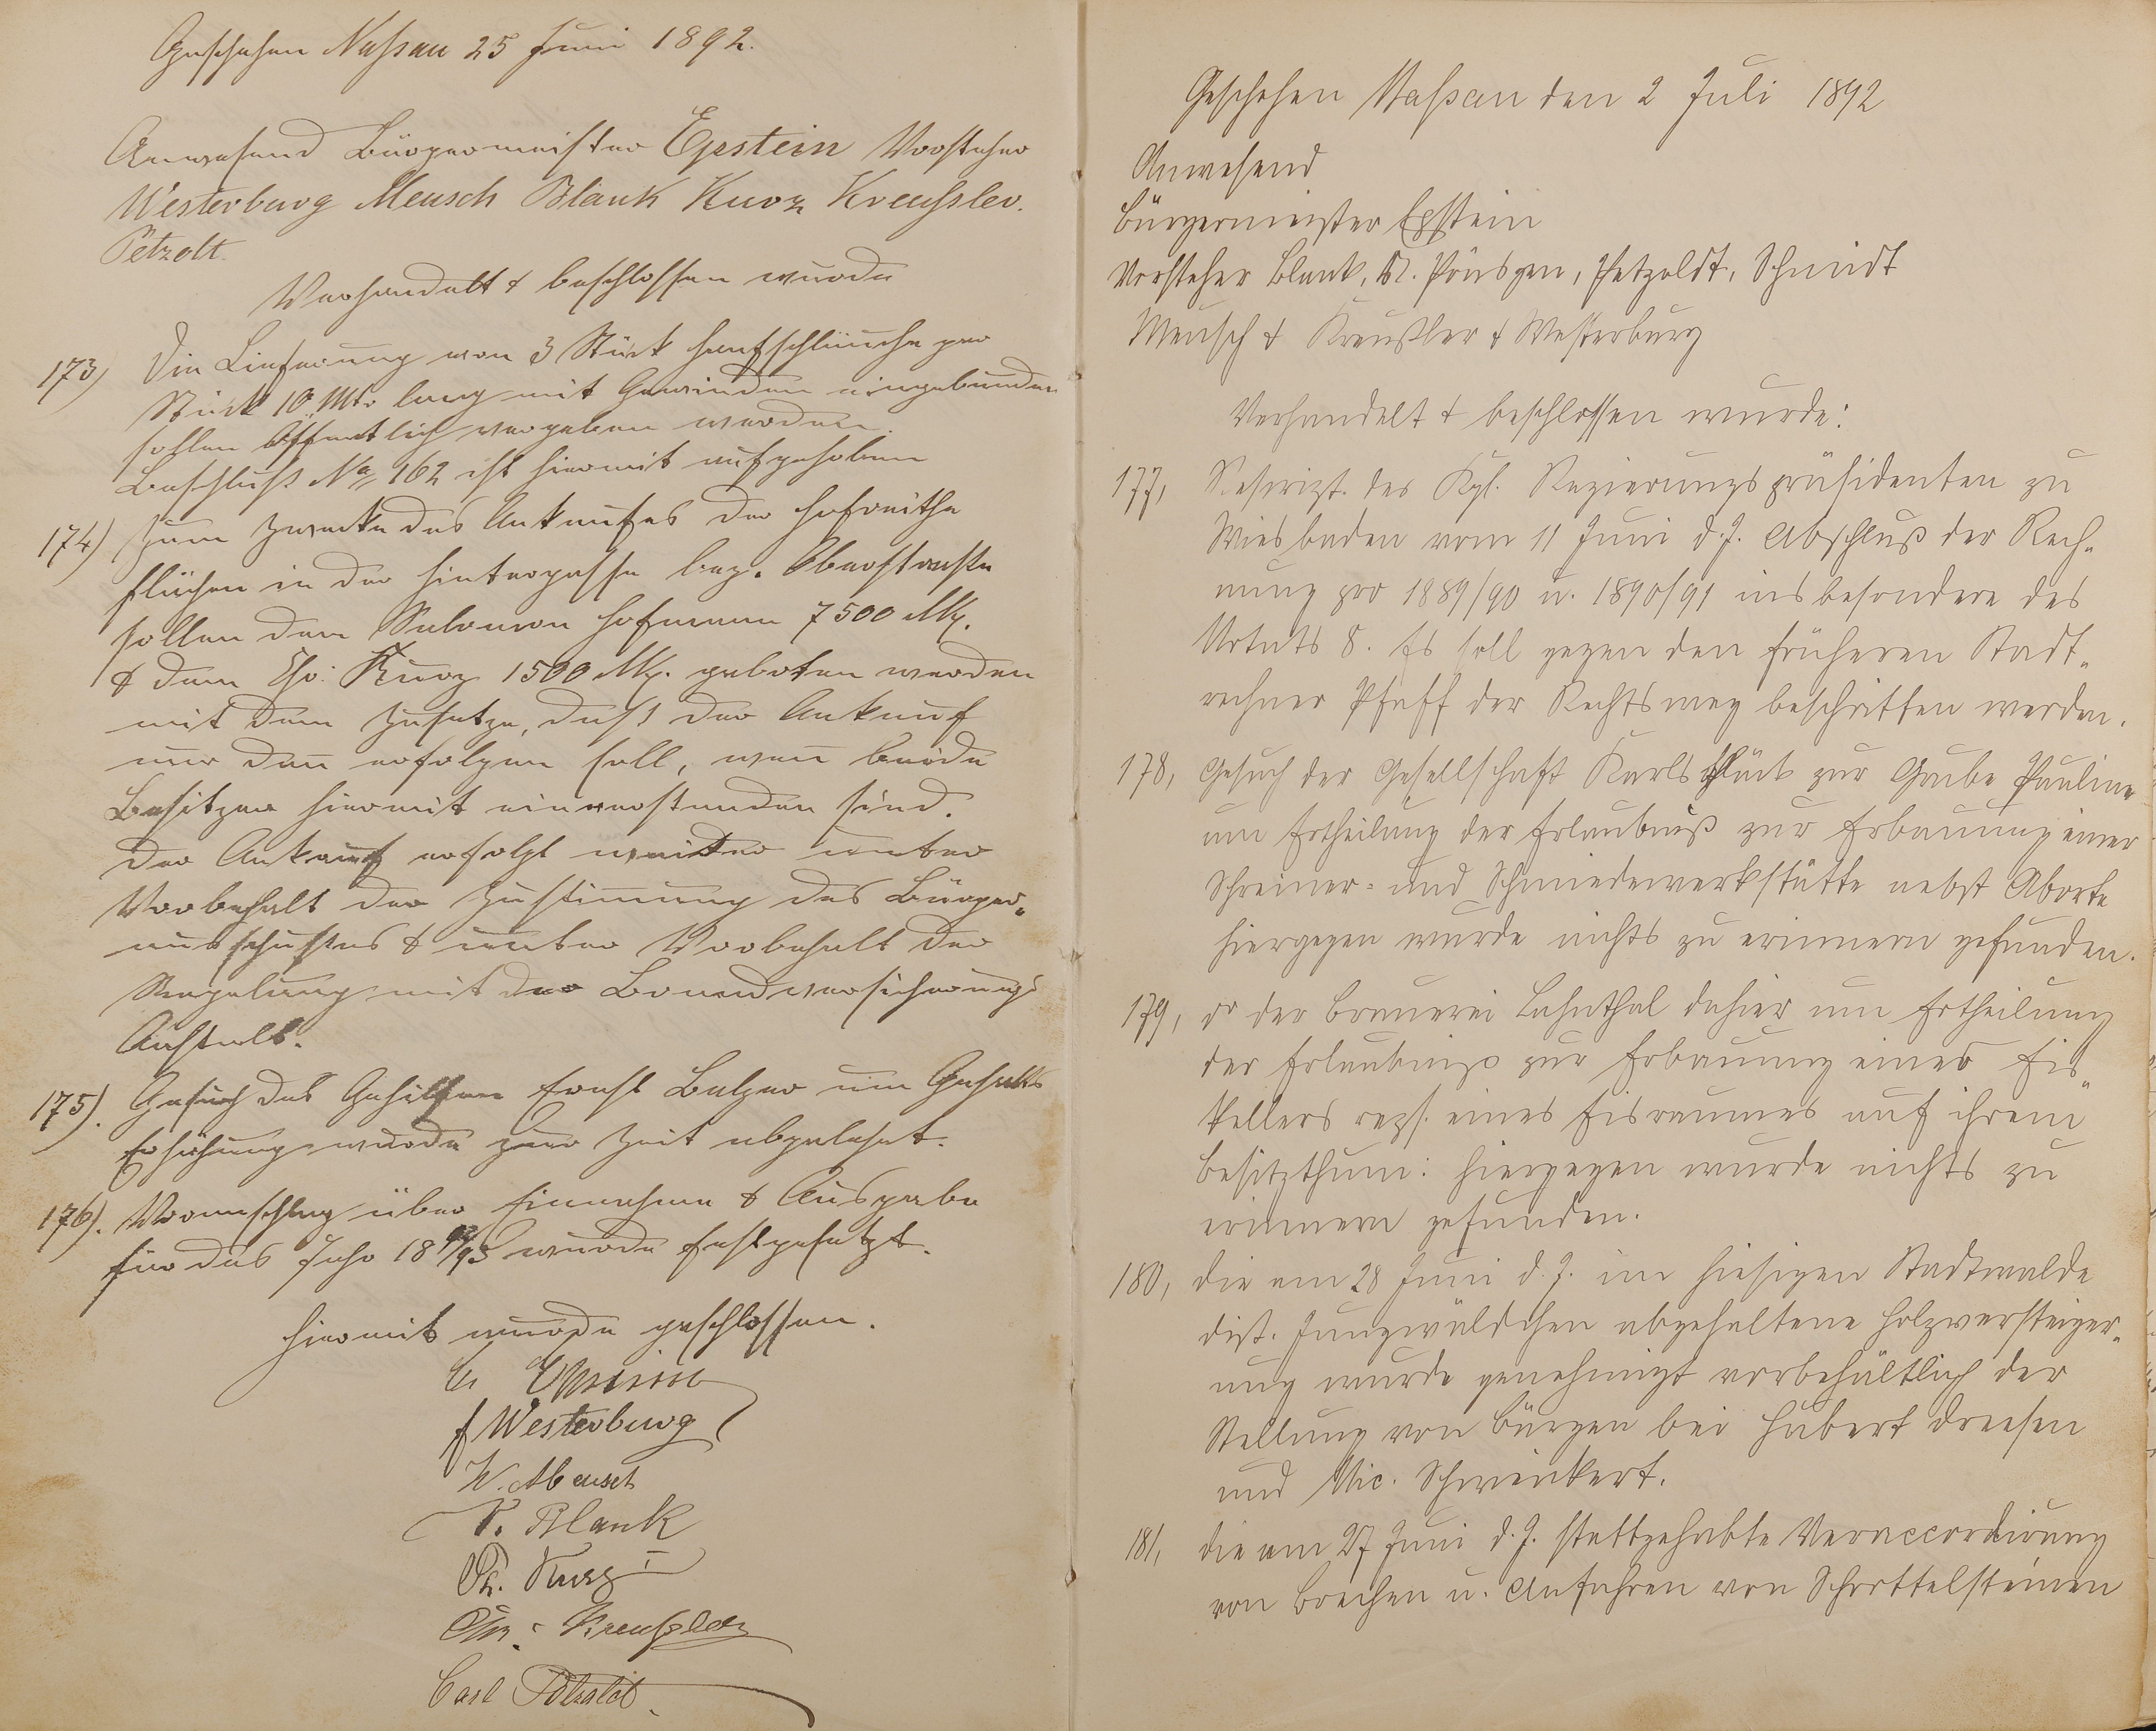 Geschehen Naßau 25 Juni 1892.
Anwesend Bürgermeister Epstein Vorsteher
Westerburg Meusch Blank Kurz Kreußler.
Petzolt.
Verhandelt & beschlossen wurde
173) Die Lieferung von 3 Stück Hanfschläuche per
Stück 10 Mtr lang mit Gewinden eingebunden
sollen öffentlich vergeben werden.
Beschluß No 162 ist hiermit aufgehoben
174) Zum Zwecke des Ankaufes der Hofreithe
flächen in der Hintergasse bez. Oberstraße
sollen dem Salomon Hofmann 7500 Mk.
& dem Chr: Kurz 1500 Mk. geboten werden
mit dem Zusatze, daß der Ankauf
nur dan̅ erfolgen soll, wen̅ beide
Besitzer hiermit einverstanden sind.
Der Ankauf erfolgt weiter unter
Vorbehalt der Zustim̅ung des Bürger„
ausschußes & unter Vorbehalt der
Regelung mit der Brandversicherungs
Anstalt.
175). Gesuch des Gehilfen Ernst Balzer um Gehalts
Erhöhung wurde zur Zeit abgelehnt.
176). Voranschlag über Einnahme & Ausgabe
für das Jahr 1892/93 wurde festgesetzt.
Hiermit wurde geschlossen.
Epstein
F Westerburg
W. Meusch
P. Blank
Ph. Kurz I
Chr: Kreußler
Carl Petzolt
Geschehen Naßau den 2 Juli 1892
Anwesend
Bürgermeister Epstein
Vorsteher Blank, A. Pönsgen, Petzoldt, Schmidt
Meusch & Kreußler & Westerburg
Verhandelt & beschlossen wurde:
177, Rescript. des Kgl. Regierungspräsidenten zu
Wiesbaden vom 11 Juni d. J. Abschluß der Rech„
nung pro 1889/90 u. 1890/91 insbesondere des
Notats 8. Es soll gegen den früheren Stadt„
rechner Pfaff der Rechtsweg beschritten werden.
178, Gesuch der Gesellschaft Karlsglück zur Grube Pauline
um Ertheilung der Erlaubniß zur Erbauung einer
Schreiner- und Schmiedewerkstätte nebst Aborte
hiergegen wurde nichts zu erinnern gefunden.
179, do der Brauerei Lahnthal dahier um Ertheilung
der Erlaubniß zur Erbauung eines Eis„
kellers resp. eines Eisraumes auf ihrem
Besitzthum: hiergegen wurde nichts zu
erinnern gefunden.
180, Die am 28 Juni d. J. im hiesigen Stadtwalde
dist. Jungwäldchen abgehaltene Holzversteiger„
ung wurde genehmigt vorbehältlich der
Stellung von Bürgen bei Hubert Dreesen
und Nic. Schweikert.
181, Die am 27 Juni d. J. stattgehabte Veraccordirung
von Brechen u. Anfahren von Schrottelsteinen